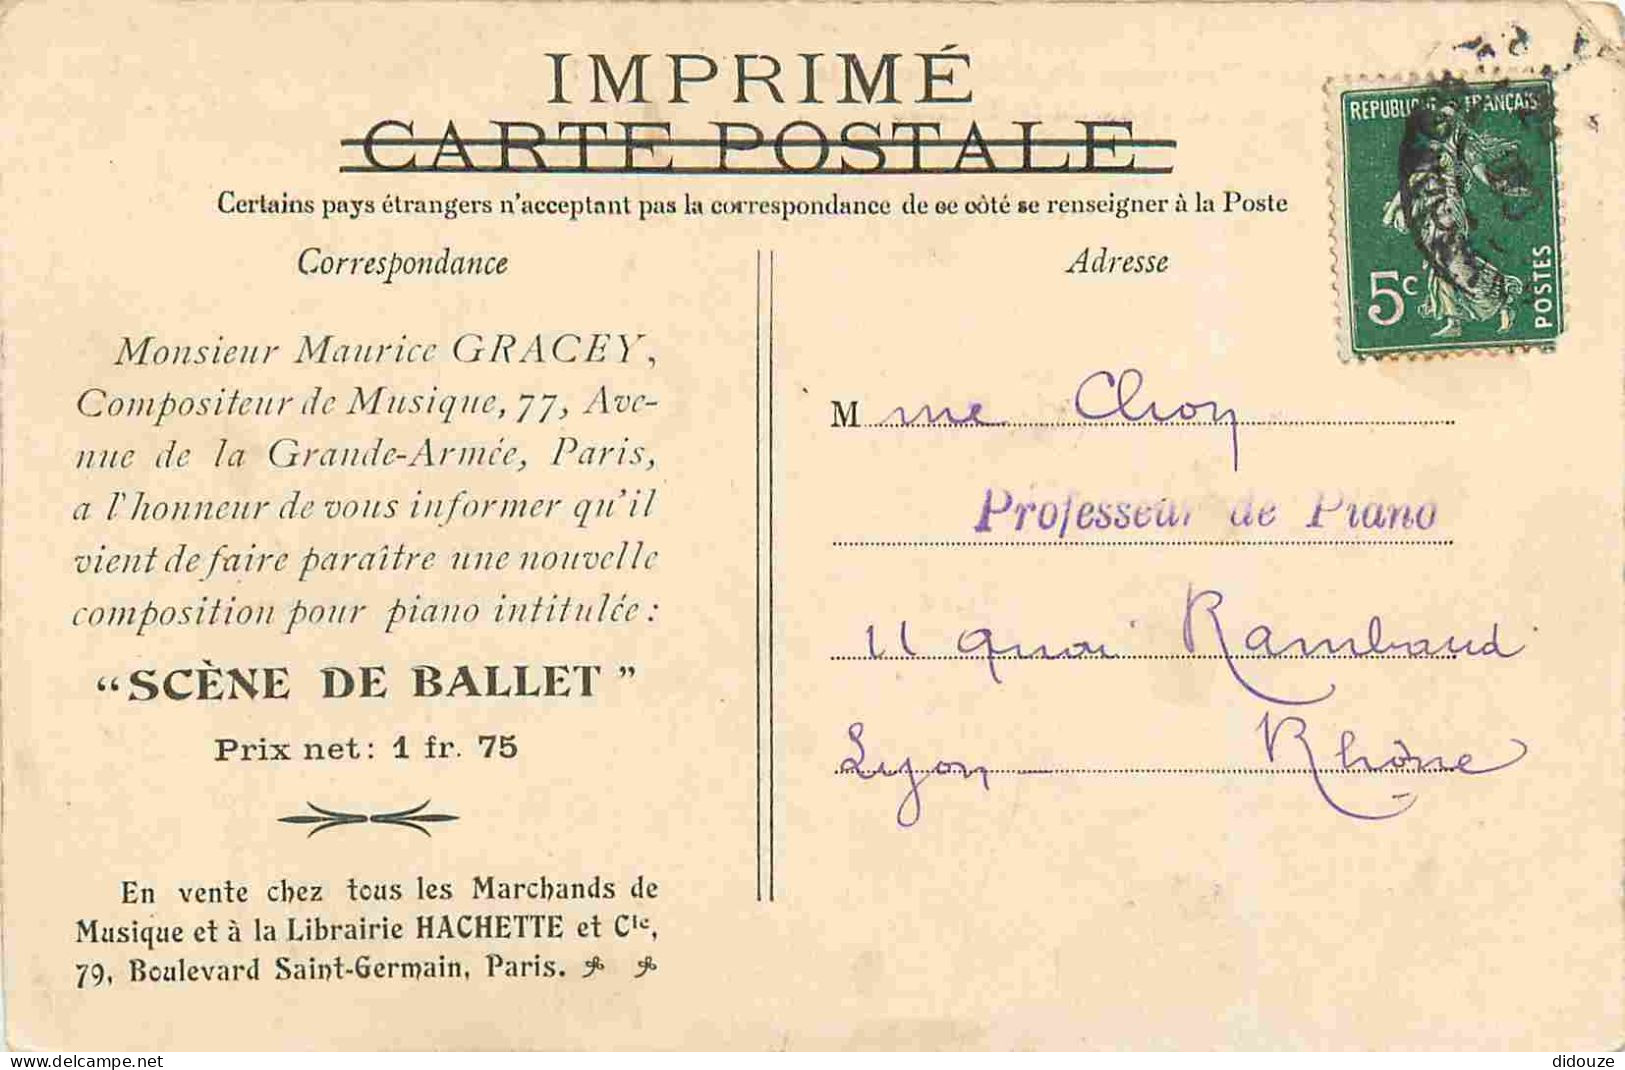 IMPRIMÉ
CARTE POSTALE
Certains pays étrangers n'acceptant pas la correspondance de ce côté se renseigner à la Poste
Correspondance
Monsieur Maurice GRACEY,
Compositeur de Musique, 77, Ave-
nue de la Grande-Armée, Paris,
a l'honneur de vous informer qu'il
vient de faire paraître une nouvelle
composition pour piano intitulée :
“SCÈNE DE BALLET”
Prix net : 1 fr. 75
En vente chez tous les Marchands de
Musique et à la Librairie HACHETTE et Cie,
79, Boulevard Saint-Germain, Paris.
Adresse
REPUBLIQUE FRANÇAISE
5c
POSTES
M me
Professeur de Piano
11 Quai Rambaud
Lyon - Rhône
didouze